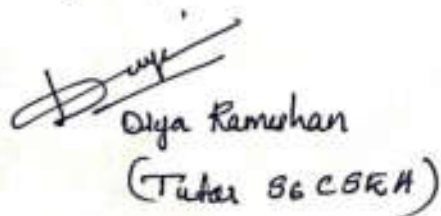 Diya Ramshan
(Tutor S6 CSEA)